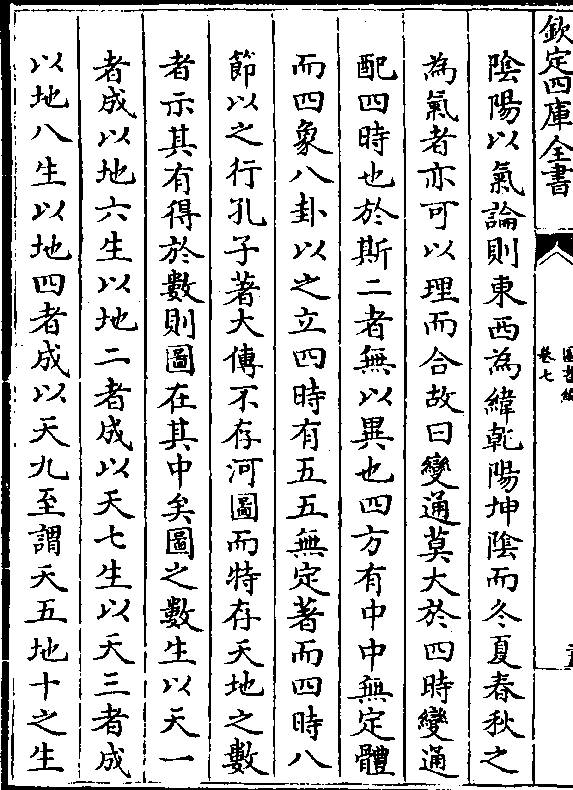 欽定四庫全書
卷七
陰陽以氣論則東西為緯乾陽坤陰而冬夏春秋之
為氣者亦可以理而合故曰變通莫大於四時變通
配四時也於斯二者無以異也四方有中中無定體
而四象八卦以之立四時有五五無定著而四時八
節以之行孔子著大傳不存河圖而特存天地之數
者示其有得於數則圖在其中矣圖之數生以天一
者成以地六生以地二者成以天七生以天三者成
以地八生以地四者成以天九至謂天五地十之生